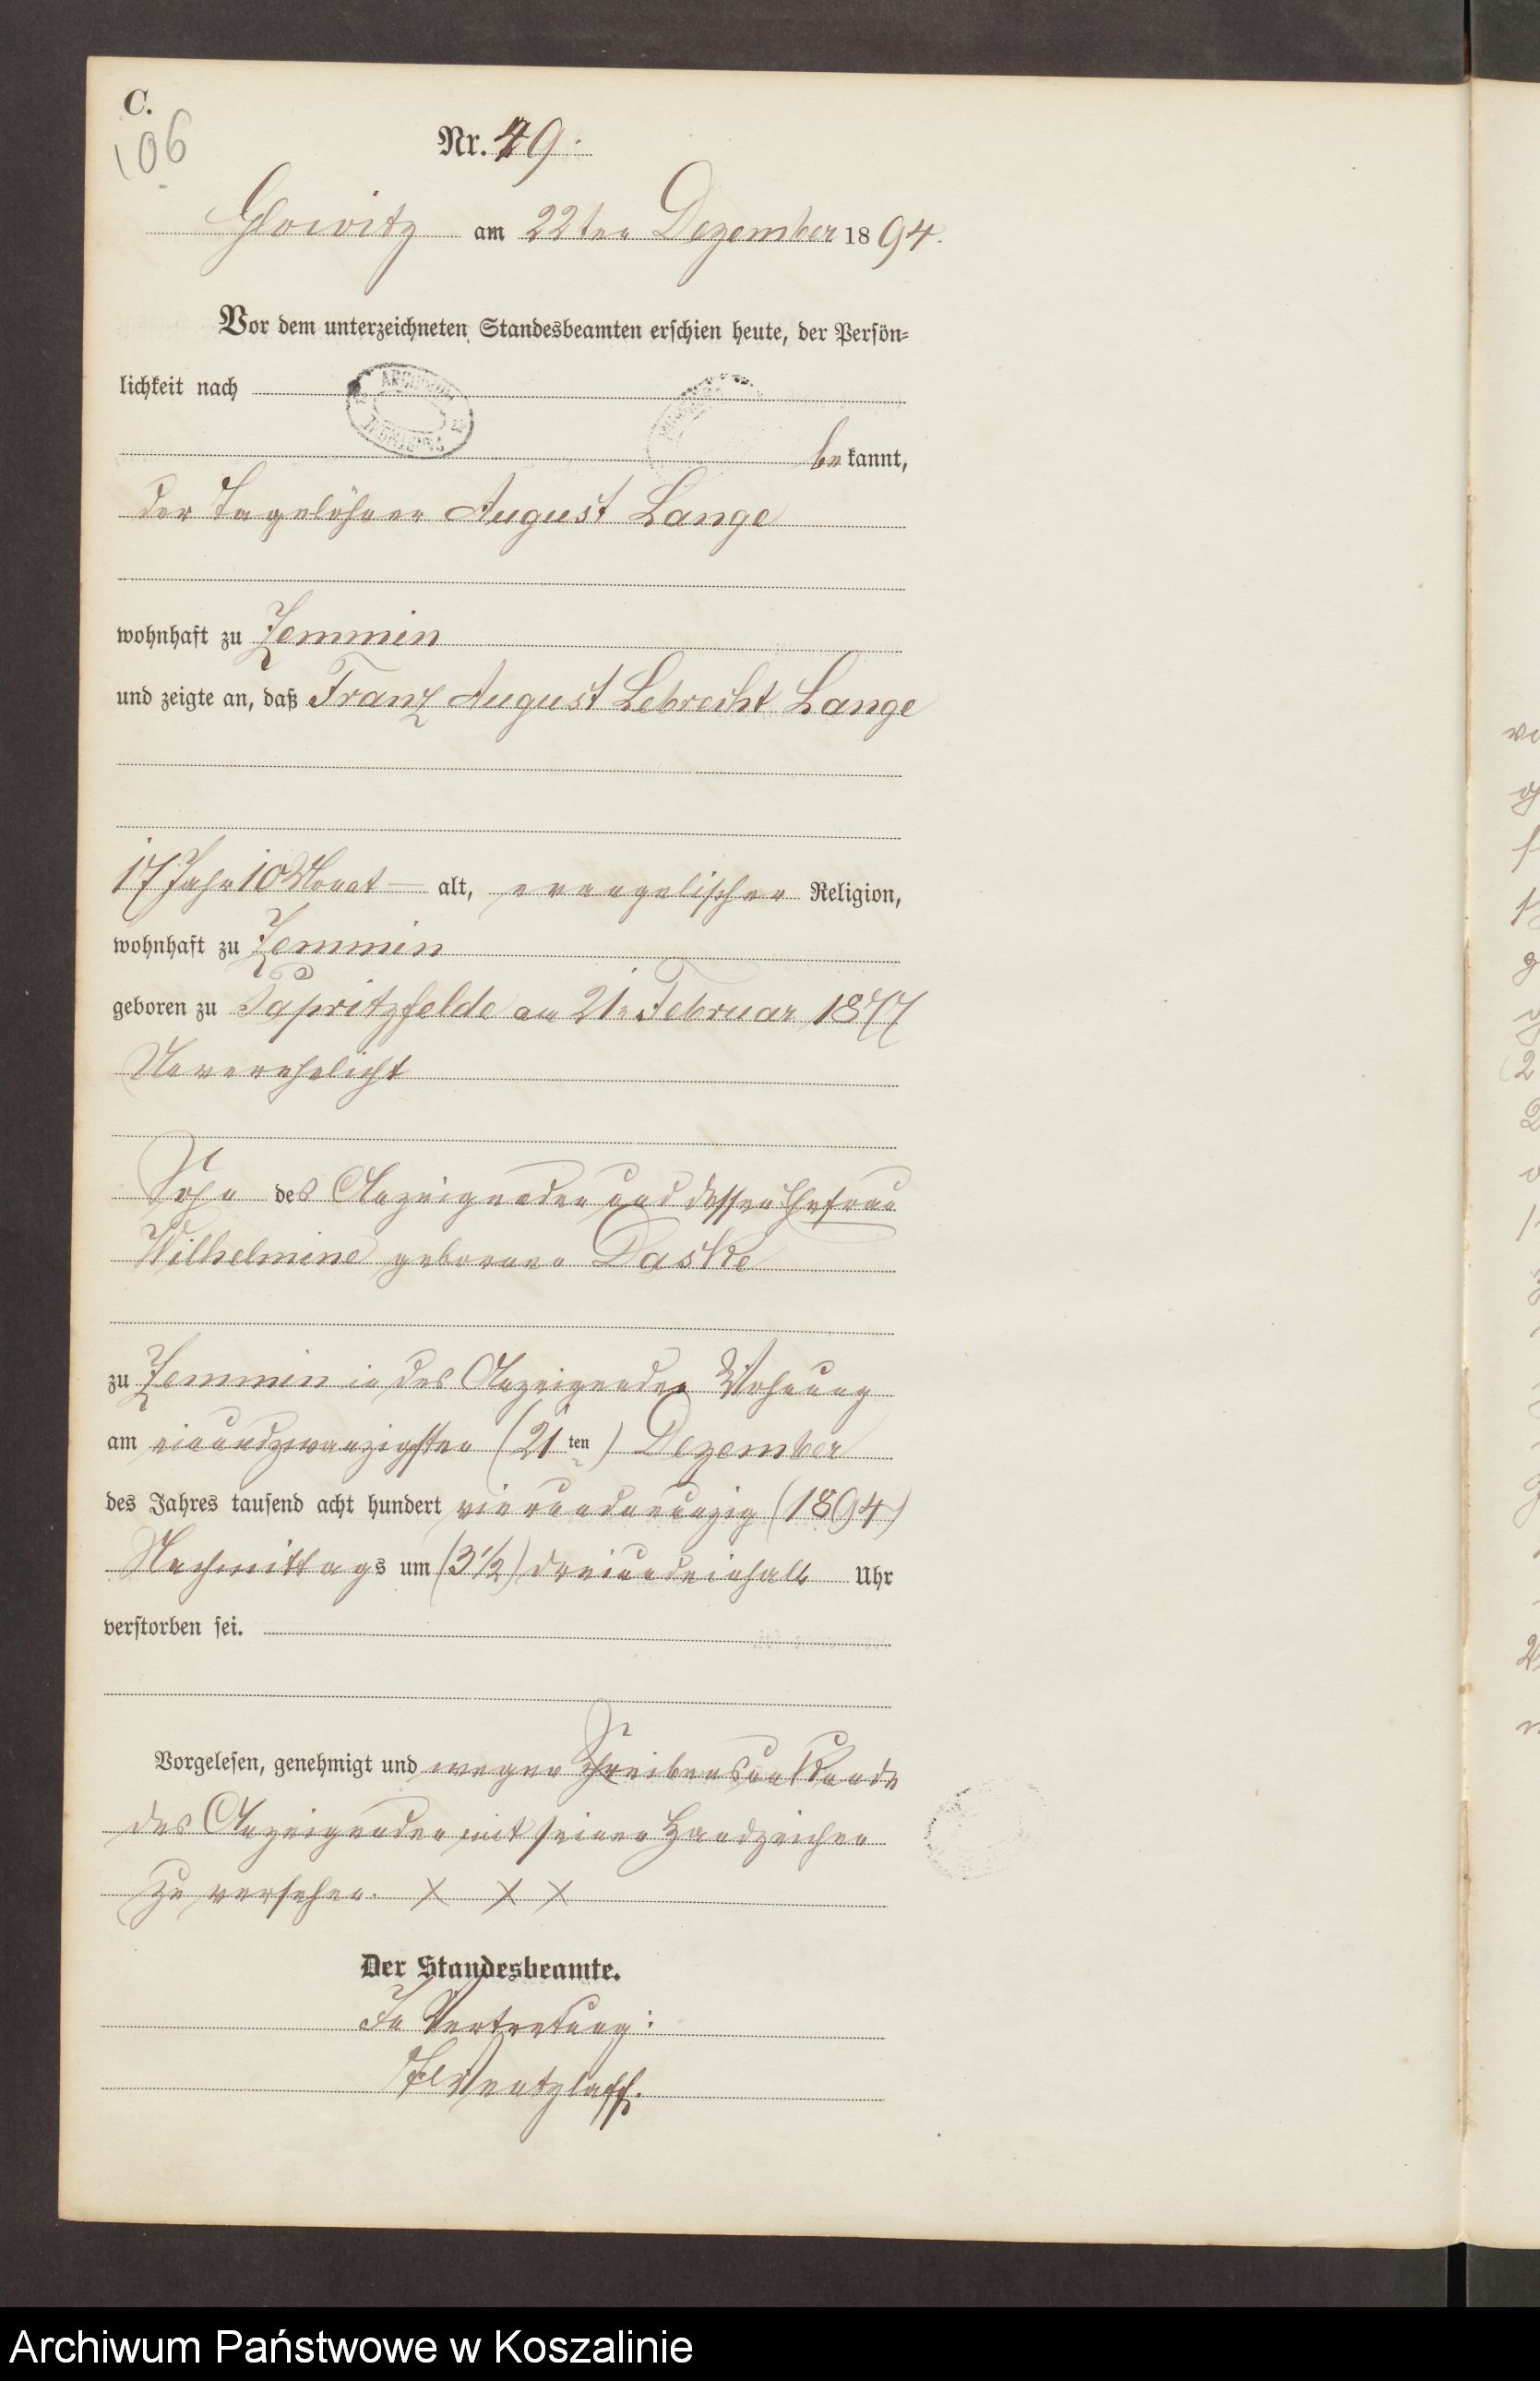 C.
106
Nr. 49.
Glowitz am 22ten Dezember 1894.
Vor dem unterzeichneten Standesbeamten erschien heute, der Persön=
lichkeit nach
bekannt,
der Tagelöhner August Lange
wohnhaft zu Zemmin
und zeigte an, daß Franz August Lebrecht Lange
17 Jahr 10 Monat — alt, evangelischer Religion,
wohnhaft zu Zemmin
geboren zu Papritzfelde am 21n Februar 1877
Unverehelicht
Sohn des Anzeigenden und dessen Ehefrau
Wilhelmine geborenen Daske
zu Zemmin in des Anzeigenden Wohnung
am einundzwanzigsten (21ten) Dezember
des Jahres tausend acht hundert vierundneunzig (1894)
Nachmittags um (3 1/2) dreiundeinhalb Uhr
verstorben sei.
Vorgelesen, genehmigt und wegen Schreibensunkunde
des Anzeigenden mit seinen Handzeichen
zu versehen. X X X
Der Standesbeamte.
In Vertretung:
Wentzlaff.
Archiwum Państwowe w Koszalinie